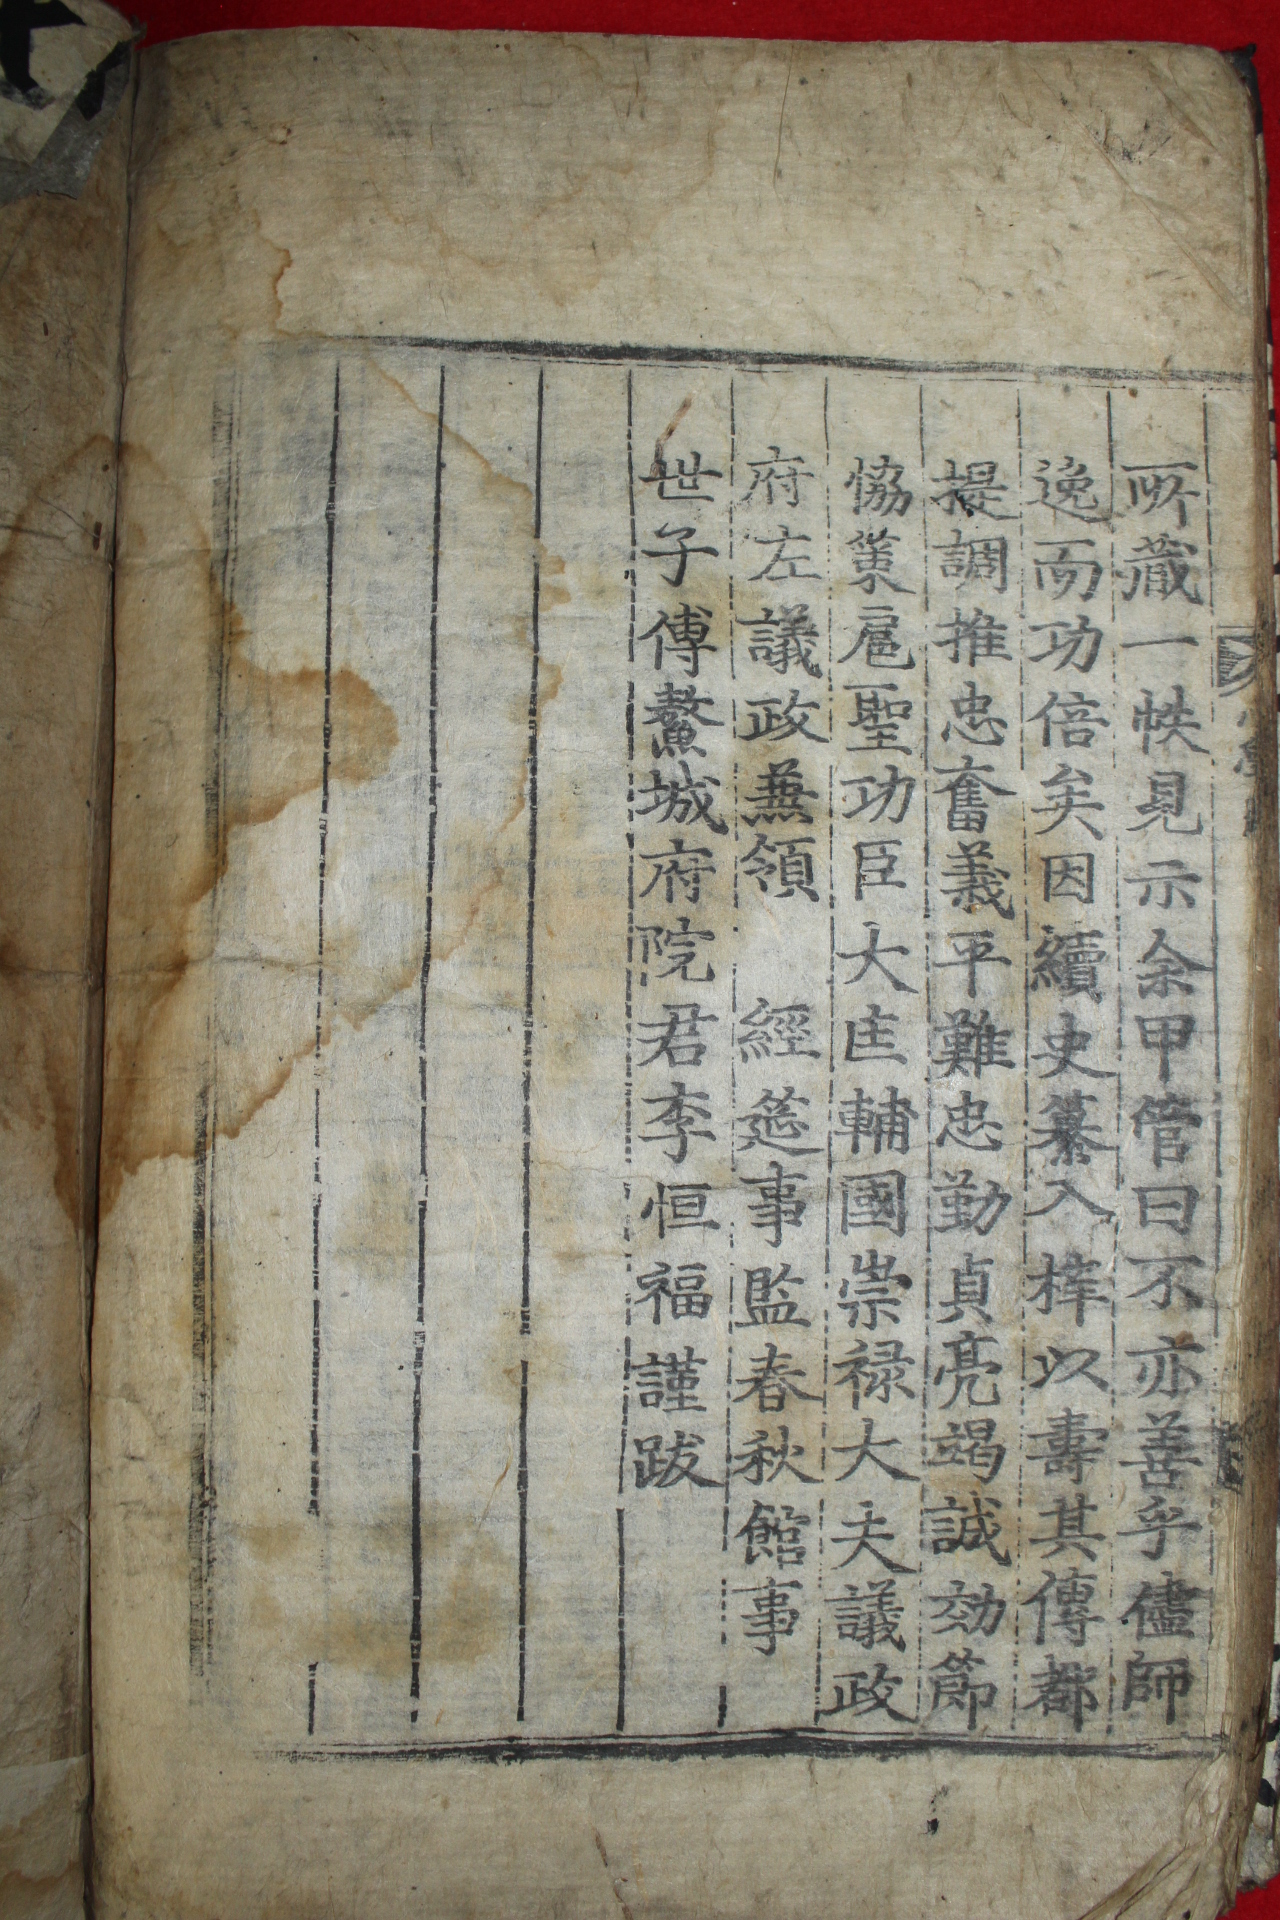 所蔵一帙見示余甲管曰不亦善乎儘師
逸而功倍矣因續史纂入榟以壽其傳都
提調推忠奮義平難忠勤貞亮竭誠効節
恊策扈聖功臣大匡輔國崇禄大夫議政
府左議政蕪領 經筵事監春秋館事
世子傅鰲城府院君李恒福謹跋